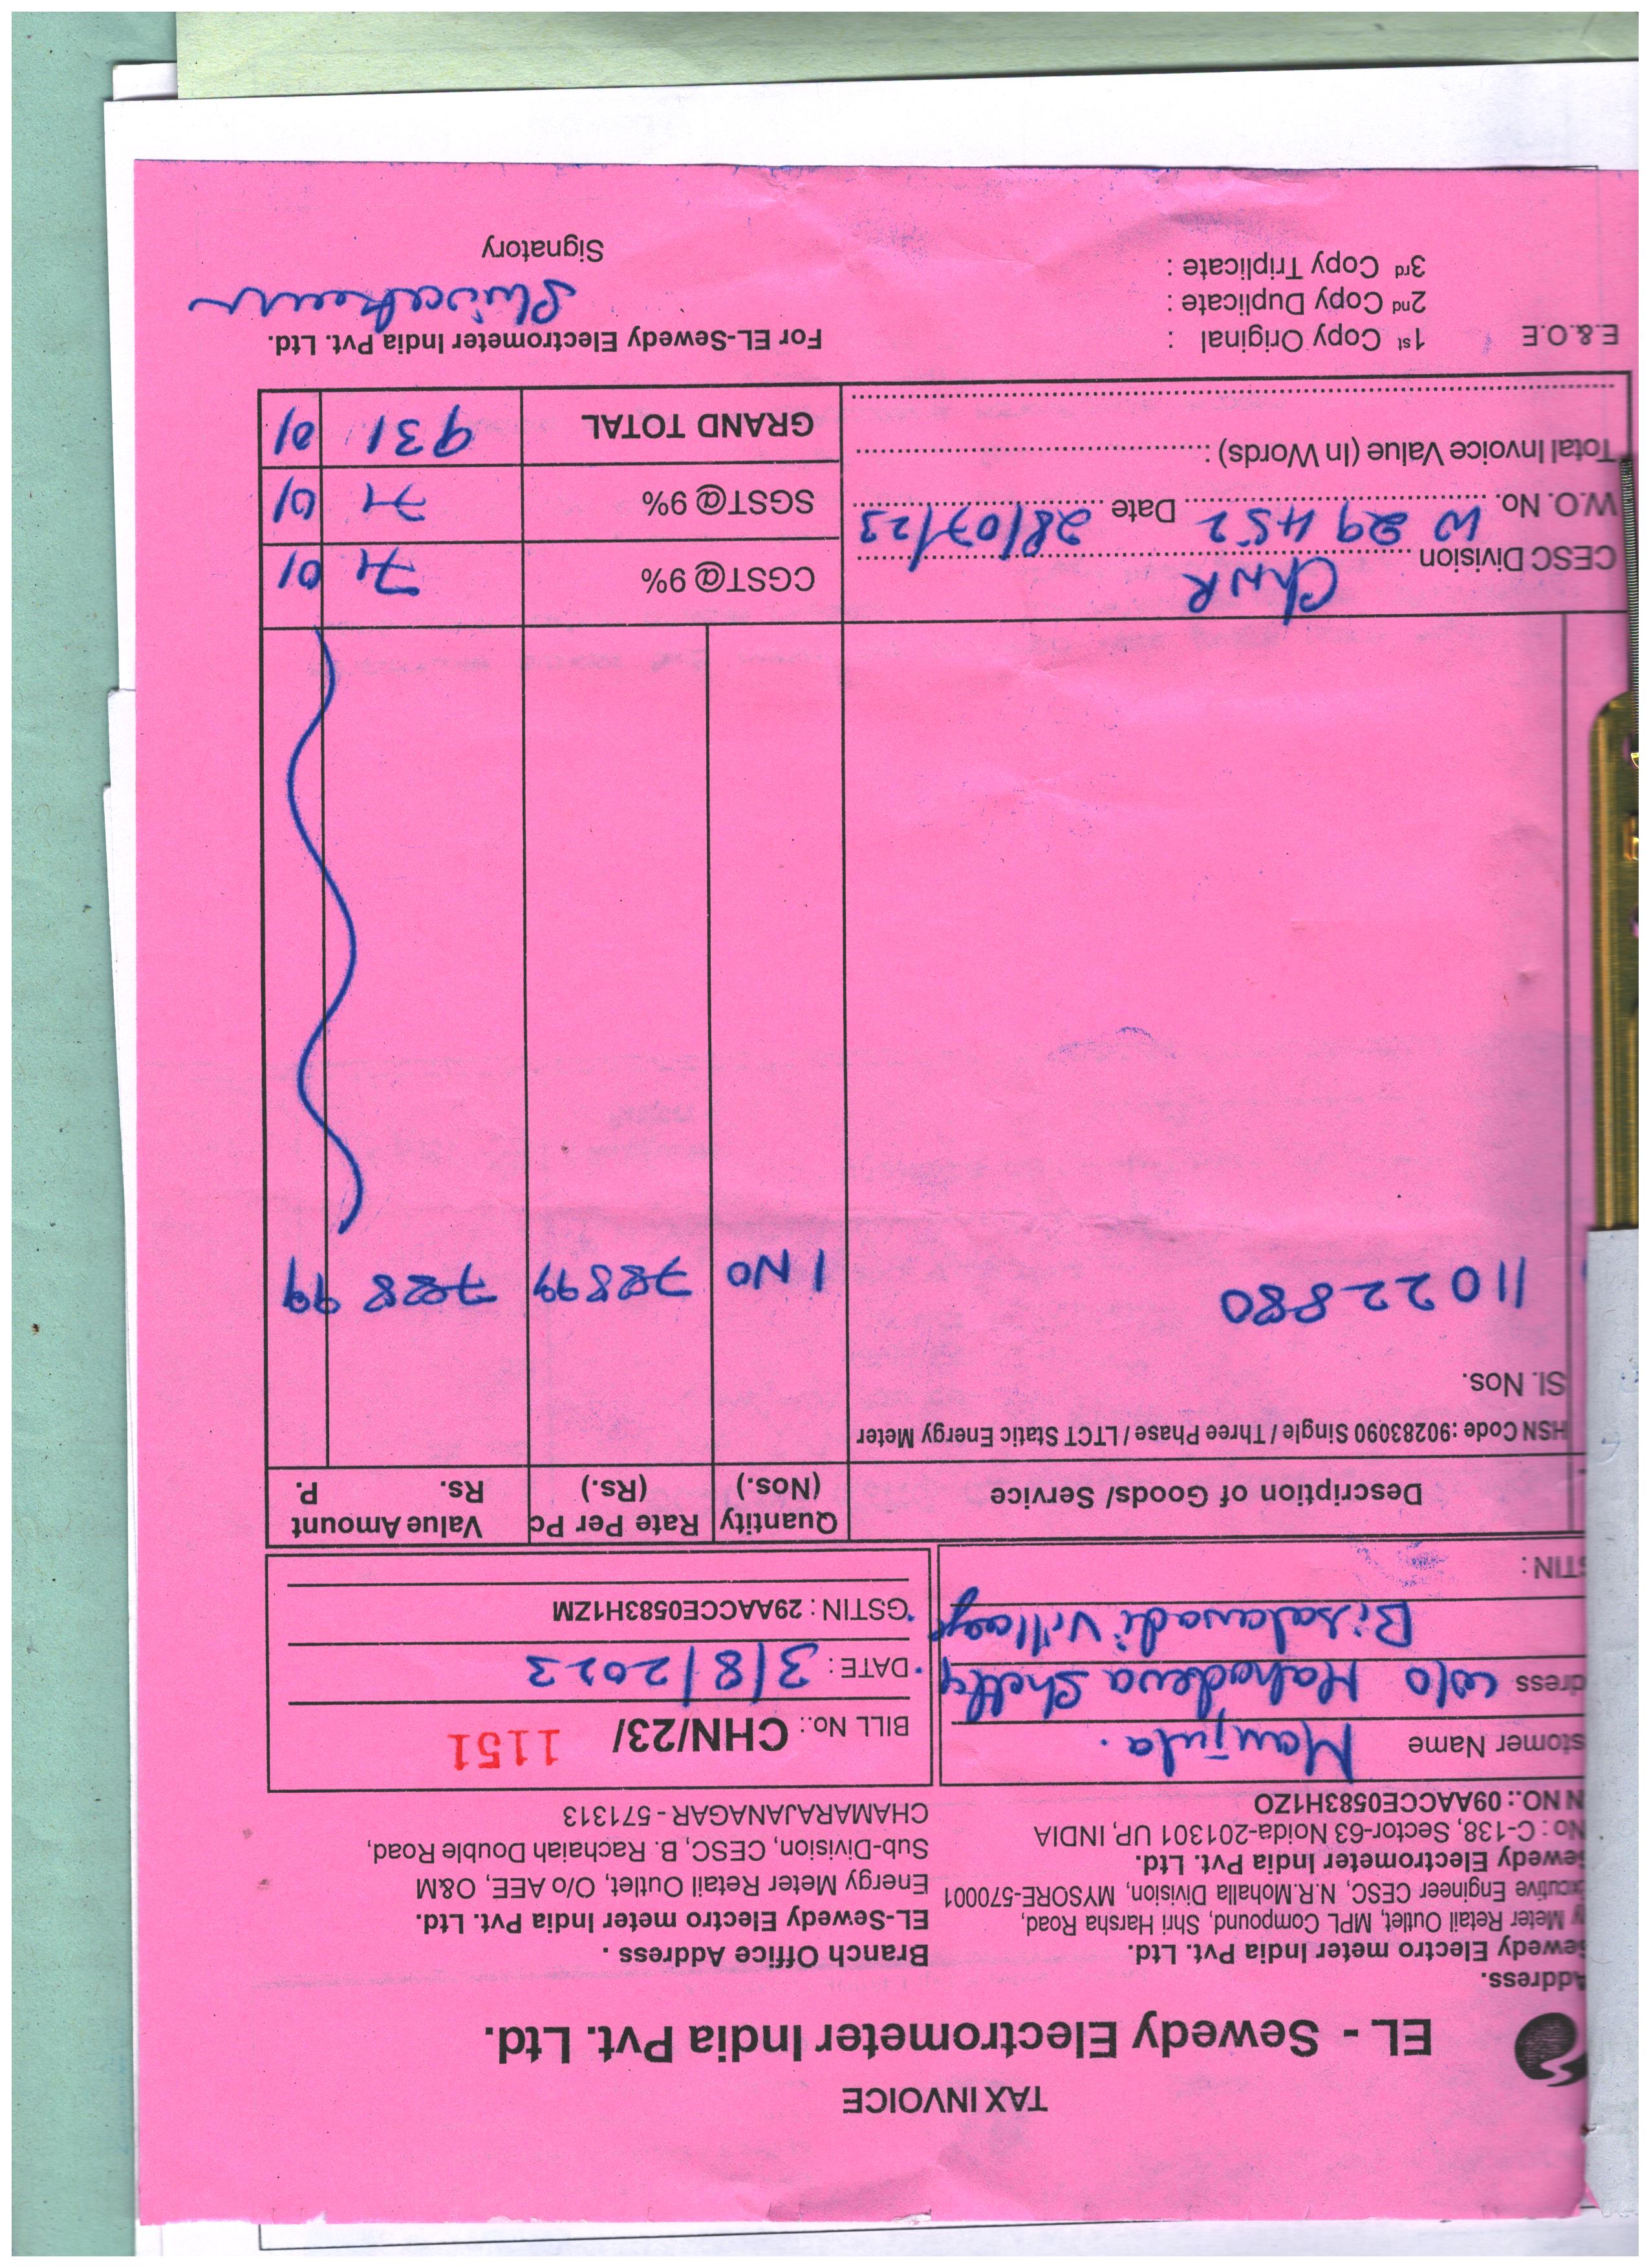 TAX INVOICE
EL - Sewedy Electrometer India Pvt. Ltd.
Address.
Sewedy Electro meter India Pvt. Ltd.
Meter Retail Outlet, MPL Compound, Shri Harsha Road,
Engineer CESC, N.R.Mohalla Division, MYSORE-570001
Sewedy Electrometer India Pvt. Ltd.
No: C-138, Sector-63 Noida-201301 UP, INDIA
N NO.: 09AACCE0583H1ZO
Branch Office Address .
EL-Sewedy Electro meter India Pvt. Ltd.
Energy Meter Retail Outlet, O/o AEE, O&M
Sub-Division, CESC, B. Rachaiah Double Road,
CHAMARAJANAGAR - 571313
stomer Name Manjula.
dress w/o Mahadeva Shetty
Bisalavadi Village
STIN :
BILL No.: CHN/23/ 1151
DATE: 3/8/2023
GSTIN : 29AACCE0583H1ZM
Description of Goods/ Service Quantity (Nos.) Rate Per Pc (Rs.) Value Amount Rs. P.
HSN Code :90283090 Single / Three Phase / LTCT Static Energy Meter
Sl. Nos.
11022880 1 No 78899 788 99
CESC Division CHNR
W.O. No. W 29452 Date 28/07/23
Total Invoice Value (In Words) :
CGST@ 9% 71 01
SGST@ 9% 71 01
GRAND TOTAL 931 01
E.&.O.E
1st Copy Original :
2nd Copy Duplicate :
3rd Copy Triplicate :
For EL-Sewedy Electrometer India Pvt. Ltd.
Signatory